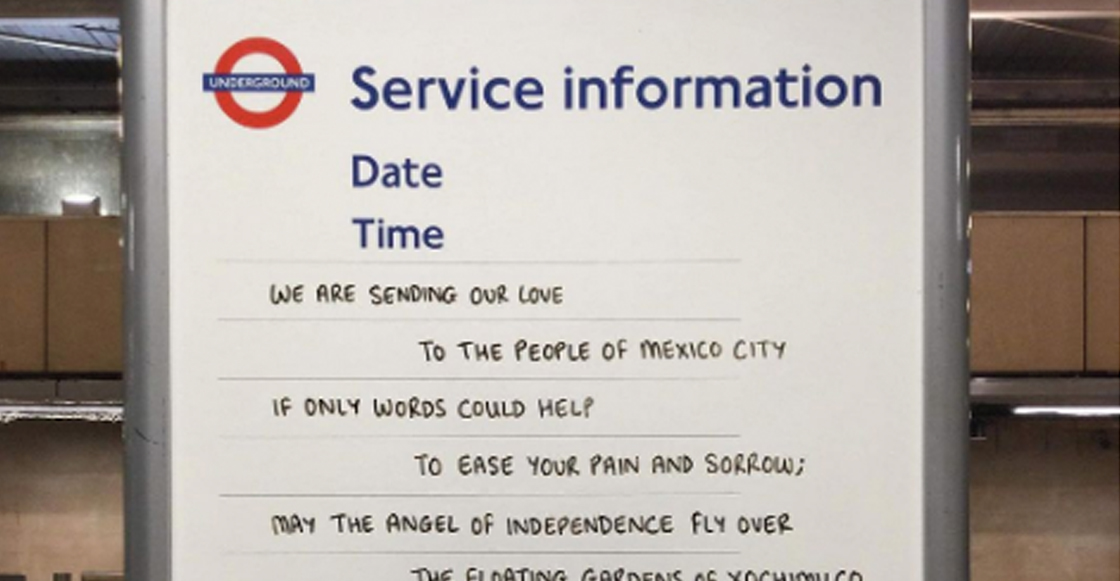 UNDERGROUND
Service information
Date
Time
WE ARE SENDING OUR LOVE
TO THE PEOPLE OF MEXICO CITY
IF ONLY WORDS COULD HELP
TO EASE YOUR PAIN AND SORROW;
MAY THE ANGEL OF INDEPENDENCE FLY OVER
THE FLOATING GARDENS OF XOCHIMILCO